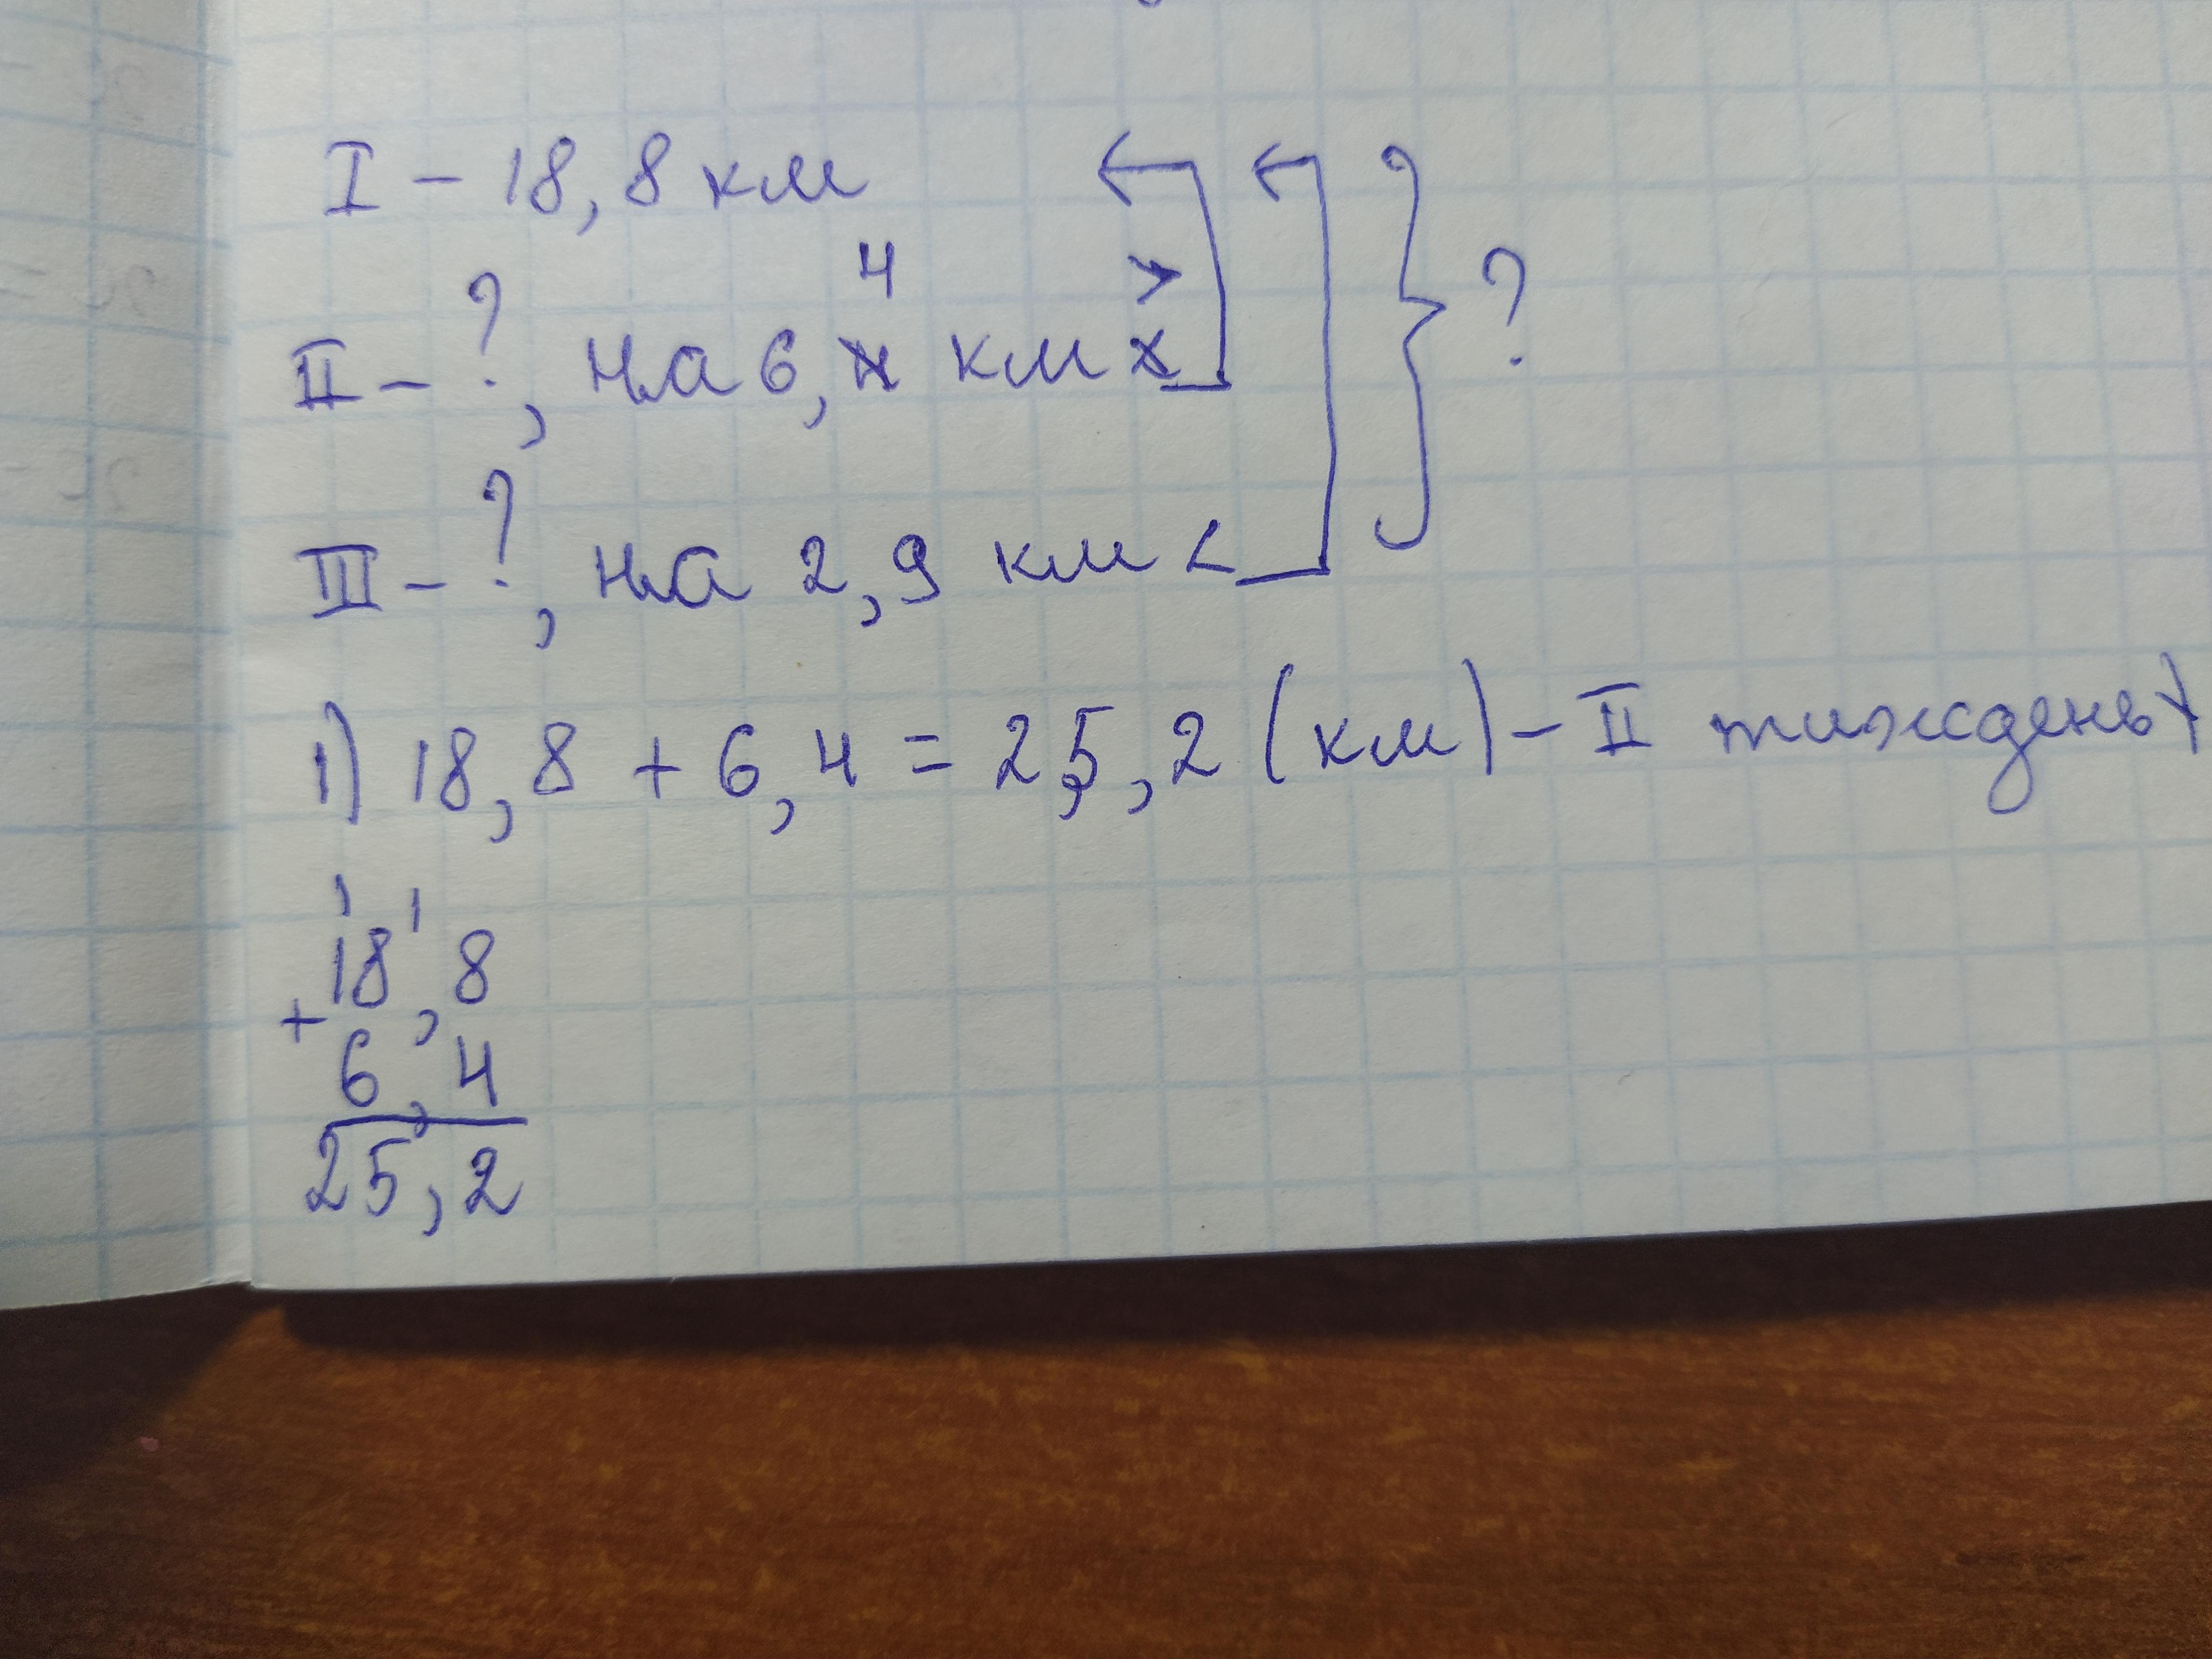 I – 18,8 км
4 >
II – ?, на 6, км ?
III – ?, на 2,9 км <
1) 18,8 + 6,4 = 25,2 (км) – II тиждень)
1 1
18,8
+
6,4
25,2